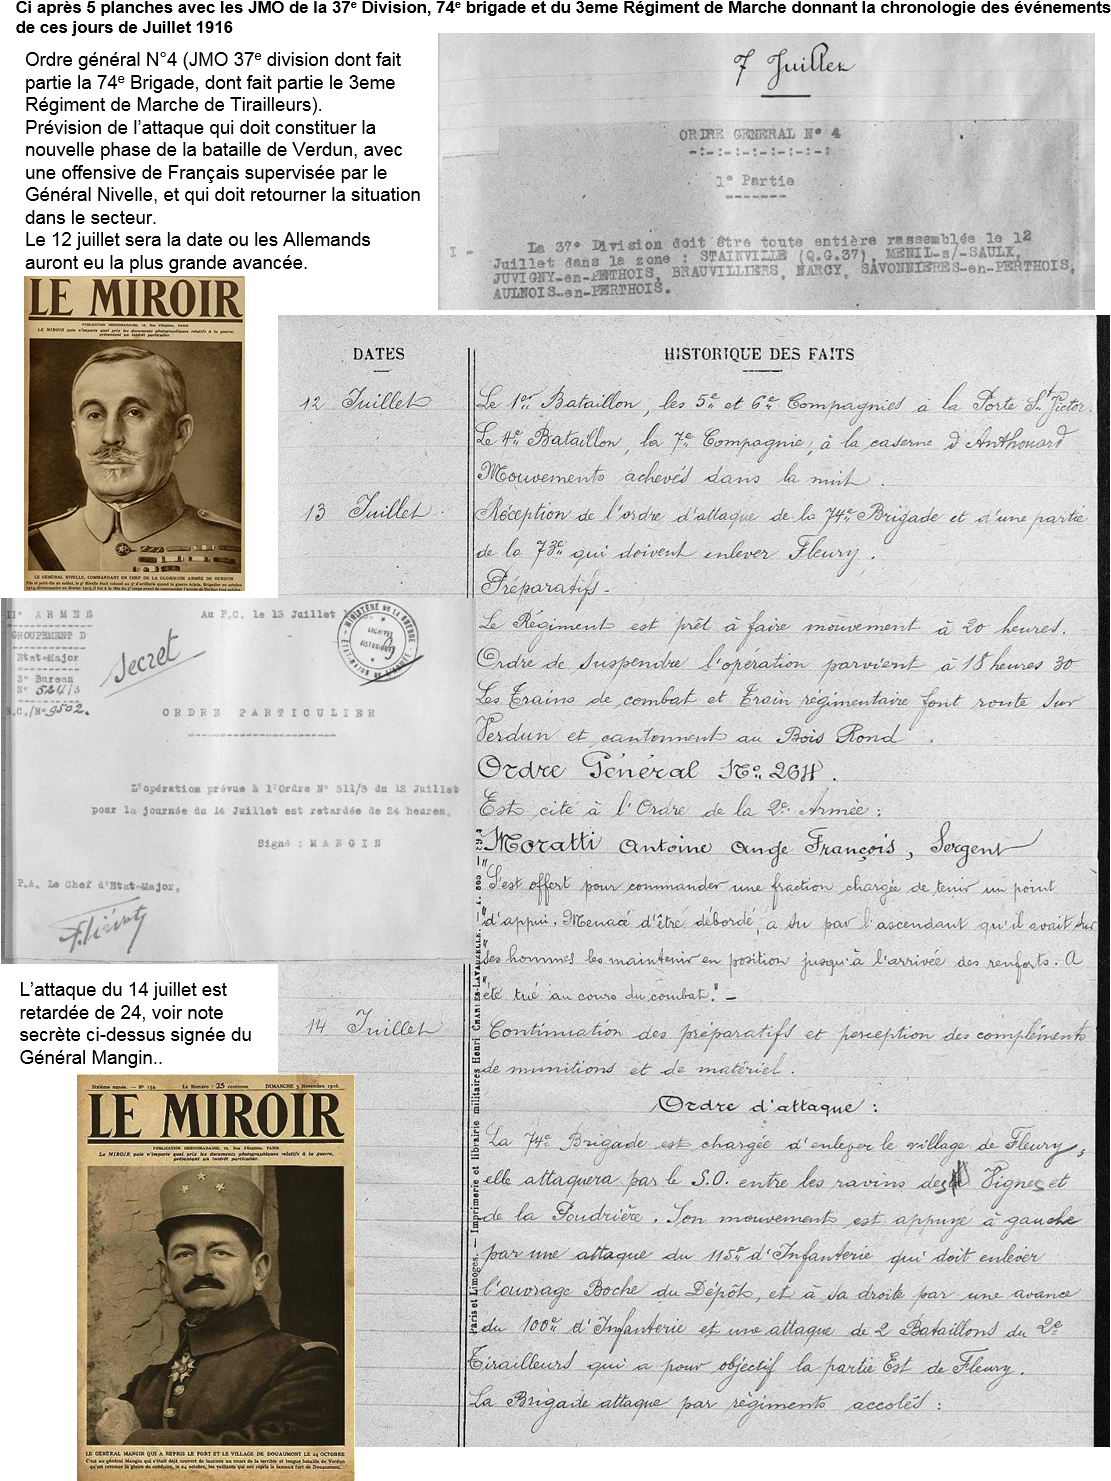 Ci après 5 planches avec les JMO de la 37e Division, 74e brigade et du 3eme Régiment de Marche donnant la chronologie des événements
de ces jours de Juillet 1916
Ordre général N°4 (JMO 37e division dont fait
partie la 74e Brigade, dont fait partie le 3eme
Régiment de Marche de Tirailleurs).
Prévision de l'attaque qui doit constituer la
nouvelle phase de la bataille de Verdun, avec
une offensive de Français supervisée par le
Général Nivelle, et qui doit retourner la situation
dans le secteur.
Le 12 juillet sera la date ou les Allemands
auront eu la plus grande avancée.
7 Juillet
ORDRE GENERAL N° 4
1° Partie
I - La 37° Division doit être toute entière rassemblée le 12
Juillet dans la zone : STAINVILLE (Q.G.37), MENIL-s/-SAULX,
JUVIGNY-en-PETHOIS, BRAUVILLIERS, NARCY, SAVONNIERES-en-PERTHOIS,
AULNOIS-en-PERTHOIS.
LE MIROIR
PUBLICATION HEBDOMADAIRE, 18, Rue d'Enghien, PARIS
LE MIROIR paie n'importe quel prix les documents photographiques relatifs à la guerre,
présentant un intérêt particulier.
LE GÉNÉRAL NIVELLE, COMMANDANT EN CHEF DE LA GLORIEUSE ARMÉE DE VERDUN
DATES
HISTORIQUE DES FAITS
12 Juillet
Le 1er Bataillon, les 5e et 6e Compagnies à la Porte St Victor.
Le 4e Bataillon, la 7e Compagnie, à la caserne d'Anthouard
Mouvements achevés dans la nuit.
13 Juillet.
Réception de l'ordre d'attaque de la 74e Brigade et d'une partie
de la 73e qui doivent enlever Fleury.
Préparatifs.
Le Régiment est prêt à faire mouvement à 20 heures.
Ordre de suspendre l'opération parvient à 18 heures 30
Les Trains de combat et Train régimentaire font route sur
Verdun et cantonnent au Bois Rond.
Ordre Général No 264.
Est cité à l'Ordre de la 2e Armée :
Moratti Antoine Ange François, Sergent
"S'est offert pour commander une fraction chargée de tenir un point
"d'appui. Menacé d'être débordé, a su par l'ascendant qu'il avait sur
"ses hommes les maintenir en position jusqu'à l'arrivée des renforts. A
"été tué au cours du combat." -
IIe ARMEE
GROUPEMENT D
Etat-Major
3° Bureau
N° 524/3
S.C./N° 9502.
Au P.C. le 13 Juillet
Secret
MINISTÈRE DE LA GUERRE
ARCHIVES
HISTORIQUES
ORDRE PARTICULIER
L'opération prévue à l'Ordre N° 511/3 du 12 Juillet
pour la journée du 14 Juillet est retardée de 24 heures.
Signé : MANGIN
P.A. Le Chef d'Etat-Major,
L'attaque du 14 juillet est
retardée de 24, voir note
secrète ci-dessus signée du
Général Mangin..
14 Juillet
Continuation des préparatifs et perception des compléments
de munitions et de matériel.
Ordre d'attaque :
La 74e Brigade est chargée d'enlever le village de Fleury,
elle attaquera par le S.O. entre les ravins des Vignes et
de la Poudrière. Son mouvement est appuyé à gauche
par une attaque du 115e d'Infanterie qui doit enlever
l'ouvrage Boche du Dépôt, et à sa droite par une avance
du 100e d'Infanterie et une attaque de 2 Bataillons du 2e
Tirailleurs qui a pour objectif la partie Est de Fleury.
La Brigade attaque par régiments accolés :
Paris et Limoges. — Imprimerie et librairie militaires Henri CHARLES-LAVAUZELLE.
Sixième année. — N° 154.
Le Numéro : 25 centimes.
DIMANCHE 5 Novembre 1916.
LE MIROIR
PUBLICATION HEBDOMADAIRE, 18, Rue d'Enghien, PARIS
Le MIROIR paie n'importe quel prix les documents photographiques relatifs à la guerre,
présentant un intérêt particulier.
LE GÉNÉRAL MANGIN QUI A REPRIS LE FORT ET LE VILLAGE DE DOUAUMONT LE 24 OCTOBRE
C'est au général Mangin qui s'était déjà couvert de lauriers au cours de la terrible et longue bataille de Verdun
qu'est revenue la gloire de conduire, le 24 octobre, les vaillants qui ont repris le fameux fort de Douaumont.